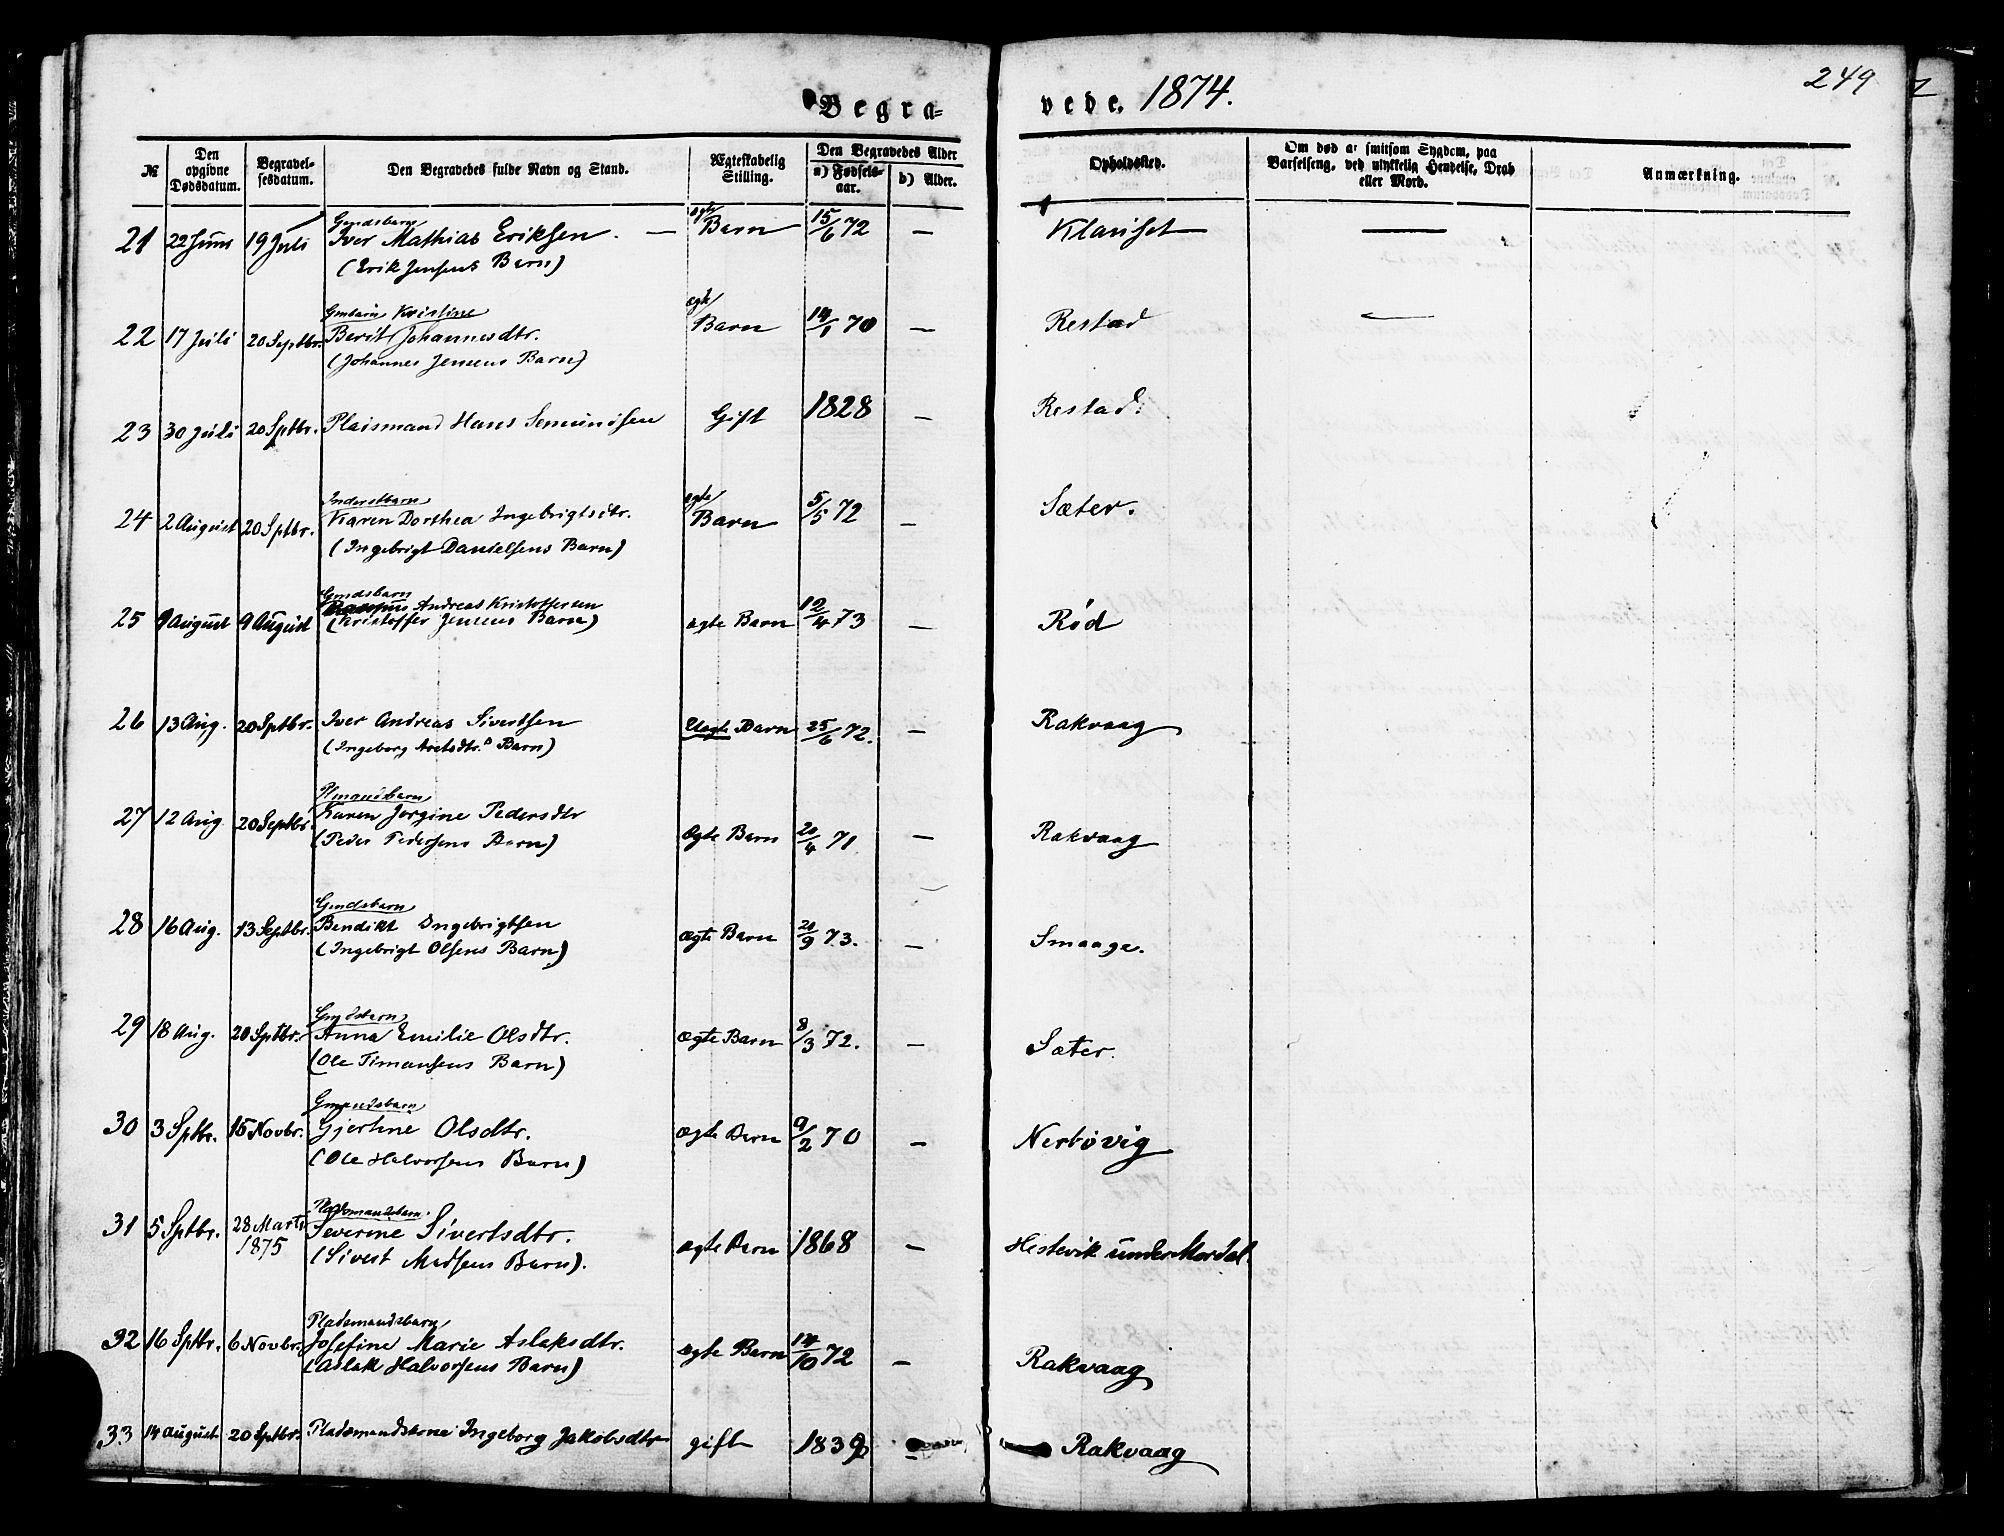 249
Begra-
vede. 1874.
№
Den opgivne Dødsdatum.
Begravelsesdatum.
Den Begravedes fulde Navn og Stand.
Ægteskabelig Stilling.
Den Begravedes Alder
a) Fødselsaar.
b) Alder.
Opholdssted.
Om død af smitsom Sygdom, paa Barselseng, ved ulykkelig Hendelse, Drab eller Mord.
Anmærkning.
Gmdsbarn
21 22 Juni 19 Juli Iver Mathias Eriksen. — ægte Barn 15/6 72 —
(Erik Jensens Barn)
— 
Gmbarn Kristine
22 17 Juli 20 Septbr. Berit Johannesdtr. ægte Barn 14/1 70 — Restad —
(Johannes Jensens Barn)
23 30 Juli 20 Sptbr. Hans Gift 1828 — Restad.
Inderstbarn
24 2 August 20 Sptbr. Karen Dorthea Ingebrigtsdtr. ægte Barn 5/5 72 — Sæter.
(Ingebrigt Danielsens Barn)
Gmdsbarn
25 9 August 9 August Rasmus Andreas Kristoffersen ægte Barn 12/4 73 — Rød
(Kristoffer Jensens Barn)
26 13 Aug. 20 Sptbr. Iver Andreas Sivertsen Uægte Barn 25/6 72. — Rakvaag
(Ingeborg Barn)
Plmandsbarn
27 12 Aug 20 Septbr. Karen Jørgine Pedersdtr Ægte Barn 20/4 71 — Rakvaag
(Peder Pedersens Barn)
Gmdsbarn
28 16 Aug. 13 Septbr. Bendikt Ingebrigtsen ægte Barn 20/9 73. — Smaage.
(Ingebrigt Olsens Barn)
Gmdsbarn
29 18 Aug. 20 Sptbr. Anna Emilie Olsdtr. ægte Barn 8/3 72. — Sæter.
(Ole Timansens Barn)
Gmandsbarn
30 3 Sptbr. 15 Novbr. Gjertine Olsdtr. ægte Barn 9/2 70 — Nerbøvig
(Ole Halvorsens Barn)
Pladsmandsbarn.
31 5 Sptbr. 28 Marts 1875 Severine Sivertsdtr. ægte Barn 1868 — Hestevik under Mordal.
(Sivert Madsens Barn).
Pladsmandsbarn
32 16 Sptbr. 6 Novbr. Josefine Marie Aslaksdtr. ægte Barn 14/10 72 — Rakvaag
(Aslak Halvorsens Barn)
33 14 August 20 Sptbr. Pladsmandskone Ingeborg Jakobsdtr gift 1839 — Rakvaag